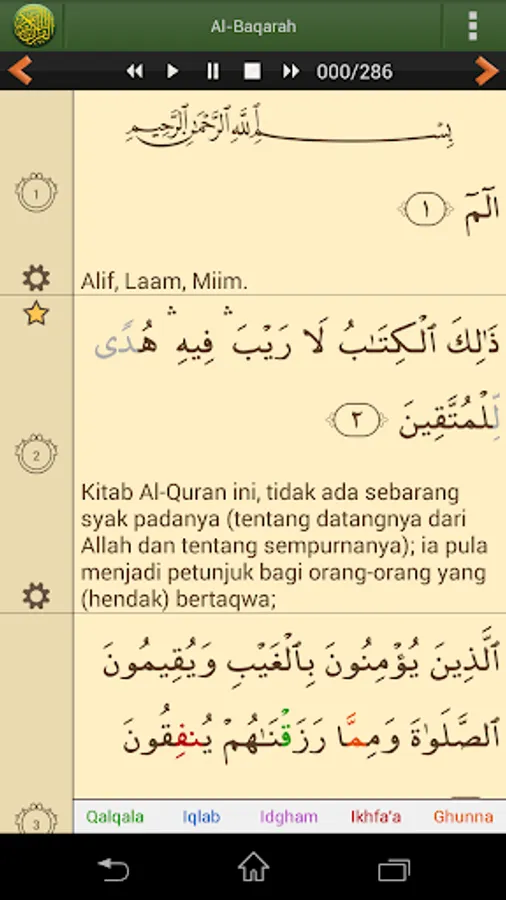 Al-Baqarah
000/286
بِسْمِ ٱللَّهِ ٱلرَّحْمَٰنِ ٱلرَّحِيمِ
1
الٓمٓ ١
Alif, Laam, Miim.
ذَٰلِكَ ٱلْكِتَـٰبُ لَا رَيْبَ ۛ فِيهِ ۛ هُدًى
لِّلْمُتَّقِينَ ٢
2
Kitab Al-Quran ini, tidak ada sebarang
syak padanya (tentang datangnya dari
Allah dan tentang sempurnanya); ia pula
menjadi petunjuk bagi orang-orang yang
(hendak) bertaqwa;
ٱلَّذِينَ يُؤْمِنُونَ بِٱلْغَيْبِ وَيُقِيمُونَ
ٱلصَّلَوٰةَ وَمِمَّا رَزَقْنَـٰهُمْ يُنفِقُونَ
3
Qalqala Iqlab Idgham Ikhfa'a Ghunna